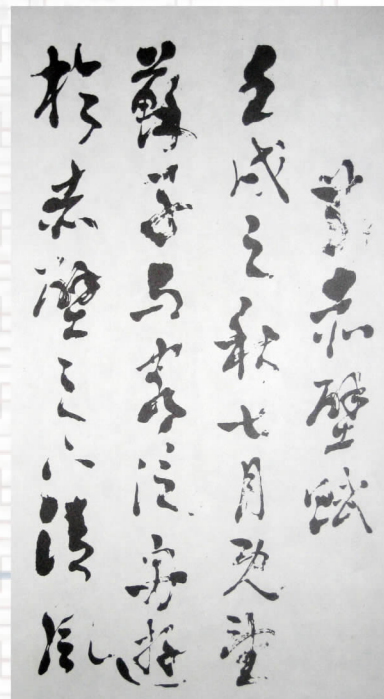 前赤壁賦
壬戌之秋七月既望
蘇子與客泛舟遊
於赤壁之下清風